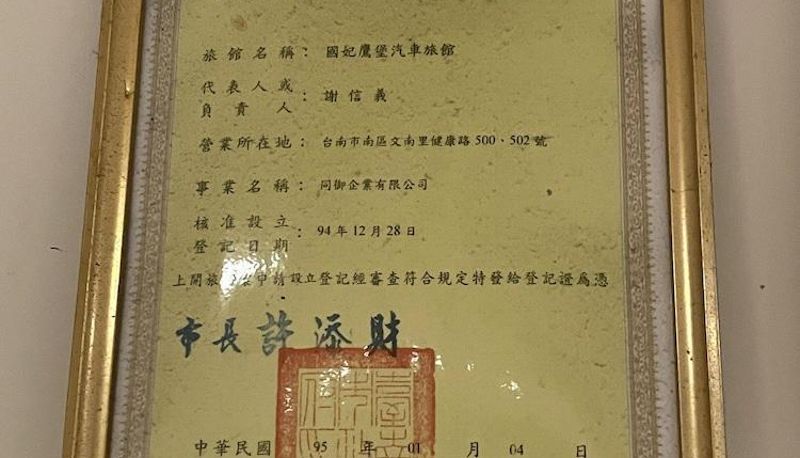 旅館名稱：國妃鷹堡汽車旅館
代表人或
負責人：謝信義
營業所在地：台南市南區文南里健康路500、502號
事業名稱：同御企業有限公司
核准設立
登記日期：94年12月28日
上開旅 申請設立登記經審查符合規定特發給登記證為憑
市長許添財
中華民國 95 年 01 月 04 日